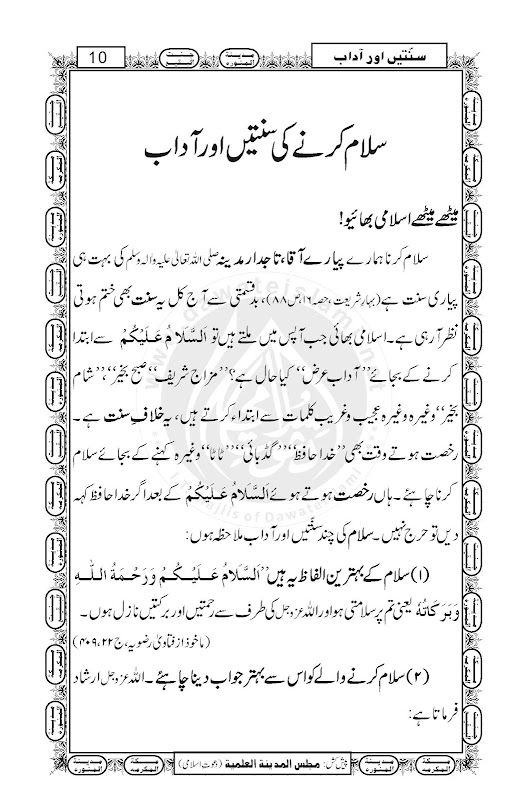 سنتیں اور آداب
10
سلام کرنے کی سنتیں اور آداب
میٹھے میٹھے اسلامی بھائیو!
سلام کرنا ہمارے پیارے آقا، تاجدار مدینہ صلی اللہ تعالیٰ علیہ والہ وسلم کی بہت ہی
پیاری سنت ہے (بہار شریعت، حصہ ۱۶، ص ۸۸)، بدقسمتی سے آج کل یہ سنت بھی ختم ہوتی
نظر آرہی ہے۔ اسلامی بھائی جب آپس میں ملتے ہیں تو اَلسَّلَامُ عَلَیْکُمْ سے ابتدا
کرنے کے بجائے ”آداب عرض“ کیا حال ہے؟ ”مزاج شریف“ صبح بخیر“، ”شام
بخیر“ وغیرہ وغیرہ عجیب وغریب کلمات سے ابتداء کرتے ہیں، یہ خلافِ سنت ہے۔
رخصت ہوتے وقت بھی ”خدا حافظ“ ”گڈ بائی“ ”ٹاٹا“ وغیرہ کہنے کے بجائے سلام
کرنا چاہئے۔ ہاں رخصت ہوتے ہوئے اَلسَّلَامُ عَلَیْکُمْ کے بعد اگر خدا حافظ کہہ
دیں تو حرج نہیں۔ سلام کی چند سنتیں اور آداب ملاحظہ ہوں:
(۱) سلام کے بہترین الفاظ یہ ہیں ”اَلسَّلَامُ عَلَیْکُمْ وَرَحْمَۃُ اللّٰہِ
وَبَرَکَاتُہٗ یعنی تم پر سلامتی ہو اور اللہ عزوجل کی طرف سے رحمتیں اور برکتیں نازل ہوں۔
(ماخوذ از فتاویٰ رضویہ، ج ۲۲، ۴۰۹)
(۲) سلام کرنے والے کو اس سے بہتر جواب دینا چاہئے۔ اللہ عزوجل ارشاد
فرماتا ہے:
پیش کش: مجلس المدینۃ العلمیۃ (دعوت اسلامی)